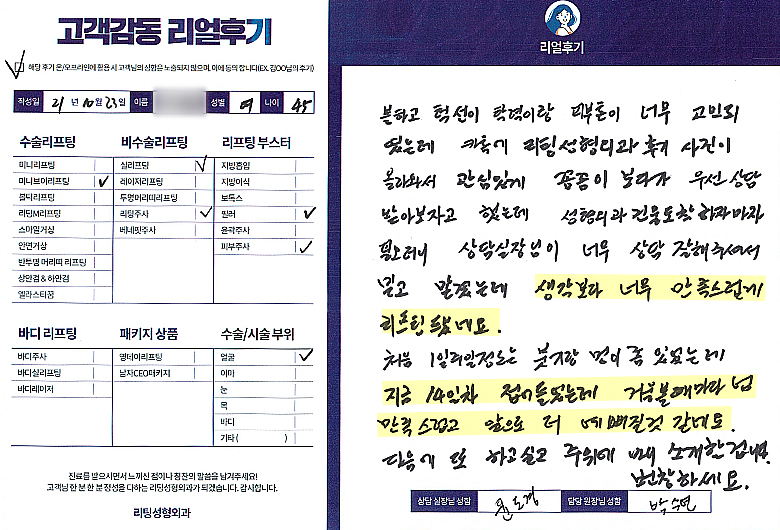 고객감동 리얼후기
해당 후기 온/오프라인에 활용 시 고객님의 성함은 노출되지 않으며, 이에 동의 합니다(EX. 김OO님의 후기)
작성일 21 년 10월 23일 이름 성별 여 나이 45
수술리프팅
미니리프팅
미니브이리프팅
볼딕리프팅
리팅M리프팅
스마일거상
안면거상
반투명 머리띠 리프팅
상안검 & 하안검
엘라스티꿈
비수술리프팅
실리프팅
레이저리프팅
투명머리띠리프팅
리팅주사
베네핏주사
리프팅 부스터
지방흡입
지방이식
보톡스
필러
윤곽주사
피부주사
바디 리프팅
바디주사
바디실리프팅
바디레이저
패키지 상품
영데이리프팅
남자CEO패키지
수술/시술 부위
얼굴
이마
눈
목
바디
기타 ( )
진료를 받으시면서 느끼신 점이나 칭찬의 말씀을 남겨주세요!
고객님 한 분 한 분 정성을 다하는 리팅성형외과가 되겠습니다. 감사합니다.
리팅성형외과
리얼후기
볼하고 턱선이 탄력이랑 피부톤이 너무 고민되
었는데 카톡에 리팅성형외과 후기 사진이
올라와서 관심있게 꼼꼼이 보다가 우선 상담
받아보자고 했는데 성형외과 건물도착 하자마자
떨으니 상담실장님이 너무 상담 잘해주셔서
믿고 맡겼는데 생각보다 너무 만족스럽게
리프팅 됐네요.
처음 1일 2일정도는 붓기랑 멍이 좀 있었는데
지금 14일차 접어들었는데 거울볼때마다 넘
만족스럽고 앞으로 더 예뻐질것 같네요.
다음에 또 하고싶고 주위에 막 소개한겁니다.
번창하세요.
상담 실장님 성함 윤도경 담당 원장님 성함 박수연